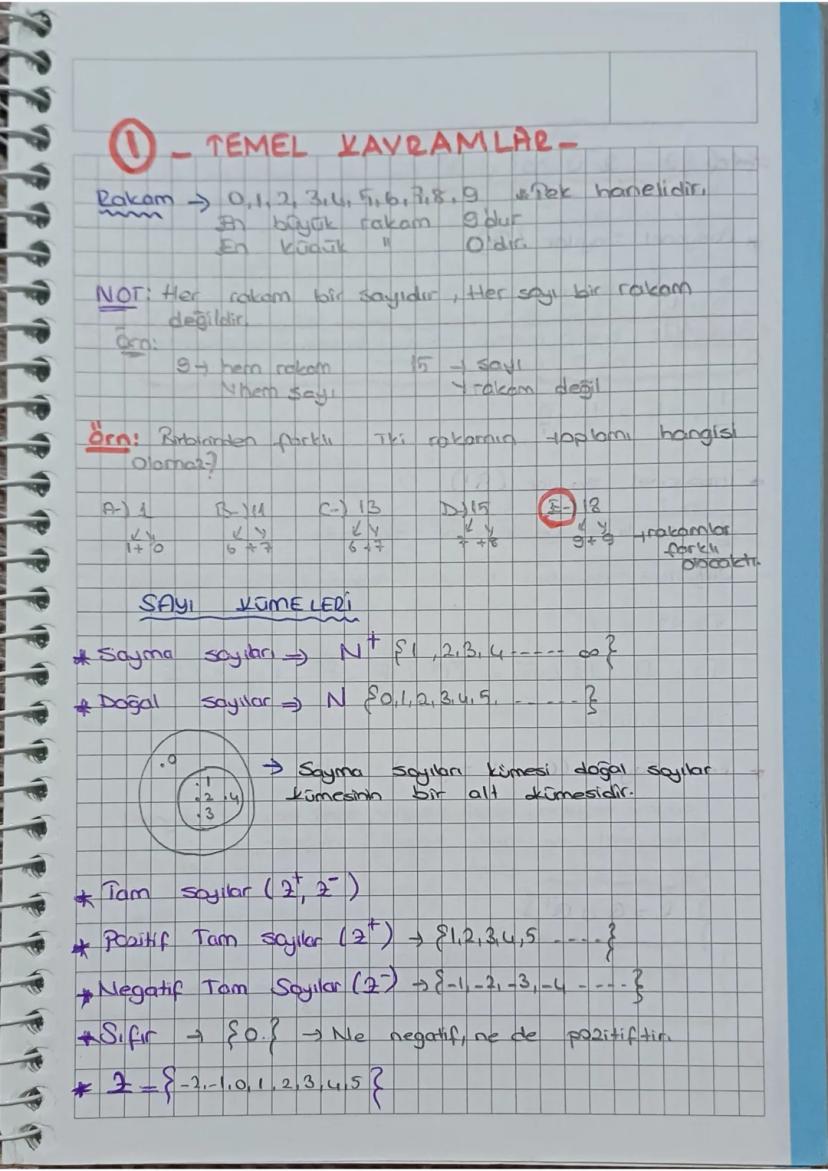 ① - TEMEL KAVRAMLAR -
Rakam → 0,1,2,3,4,5,6,7,8,9 * Tek hanelidir.
En büyük rakam 9'dur
En küçük " 0'dır.
NOT: Her rakam bir sayıdır, Her sayı bir rakam
değildir.
Örn:
9 → hem rakam 15 → sayı
↘ hem sayı ↘ rakam değil
Örn: Birbirinden farklı iki rakamın toplamı hangisi
olamaz?
A-) 1 B-) 11 C-) 13 D-) 15 E-) 18
1+0 6+7 6+7 7+8 9+9 → rakamlar
farklı
olacaktı.
SAYI KÜMELERİ
* Sayma sayıları ⇒ N⁺ {1, 2, 3, 4 ----- ∞}
* Doğal sayılar ⇒ N {0,1,2,3,4,5, ------}
.0
.1
.2 .4
.3
→ Sayma sayıları kümesi doğal sayılar
kümesinin bir alt kümesidir.
* Tam sayılar (Z⁺, Z⁻)
* Pozitif Tam sayılar (Z⁺) → {1,2,3,4,5 ----}
* Negatif Tam Sayılar (Z⁻) → {-1,-2,-3,-4 ----}
* Sıfır → {0.} → Ne negatif, ne de pozitiftir.
* Z = {-2,-1,0,1,2,3,4,5}